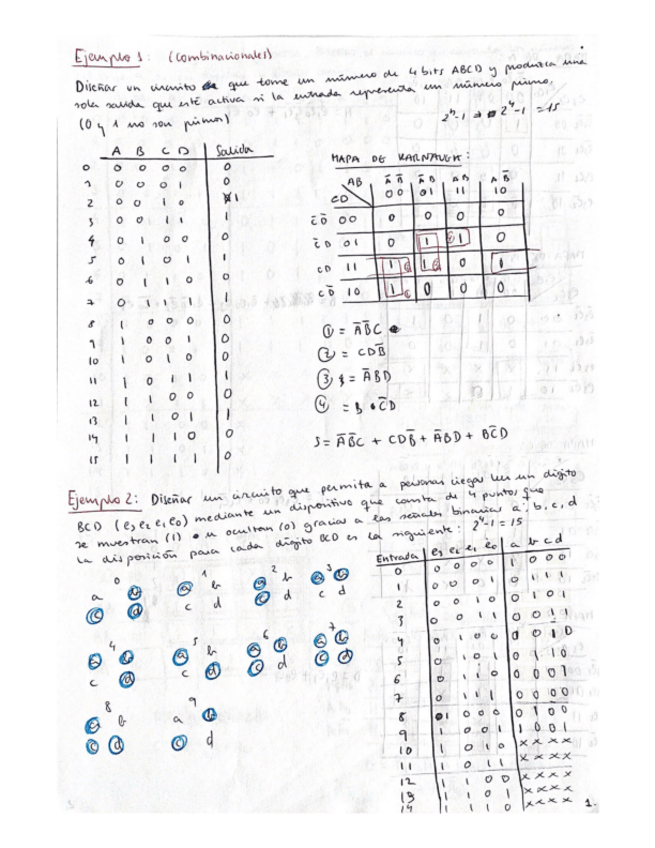 Ejemplo 1: (combinacionales)
Diseñar un circuito que tome un número de 4 bits ABCD y produzca una
sola salida que esté activa si la entrada representa un número primo.
(0 y 1 no son primos)
2⁴-1 = 15
A B C D Salida
0 0 0 0 0 0
1 0 0 0 1 0
2 0 0 1 0 1
3 0 0 1 1 1
4 0 1 0 0 0
5 0 1 0 1 1
6 0 1 1 0 0
7 0 1 1 1 1
8 1 0 0 0 0
9 1 0 0 1 0
10 1 0 1 0 0
11 1 0 1 1 1
12 1 1 0 0 0
13 1 1 0 1 1
14 1 1 1 0 0
15 1 1 1 1 0
MAPA DE KARNAUGH:
AB
CD 00 01 11 10
C̄D̄ 00 0 0 0 0
C̄D 01 0 1 1 0
CD 11 1 1 0 1
CD̄ 10 1 0 0 0
① = ĀB̄C
② = CDB̄
③ = ĀBD
④ = BC̄D
S = ĀB̄C + CDB̄ + ĀBD + BC̄D
Ejemplo 2: Diseñar un circuito que permita a personas ciegas leer un dígito
BCD (e₃ e₂ e₁ e₀) mediante un dispositivo que consta de 4 puntos que
se muestran (1) u ocultan (0) gracias a las señales binarias a, b, c, d
La disposición para cada dígito BCD es la siguiente: 2⁴-1 = 15
0 1 2 3
a b a b a b a b
c d c d c d c d
4 5 6 7
a b a b a b a b
c d c d c d c d
8 9
a b a b
c d c d
Entrada e₃ e₂ e₁ e₀ a b c d
0 0 0 0 0 1 0 0 0
1 0 0 0 1 0 1 1 1
2 0 0 1 0 0 1 0 1
3 0 0 1 1 0 0 1 1
4 0 1 0 0 0 0 1 0
5 0 1 0 1 0 1 1 0
6 0 1 1 0 0 0 0 1
7 0 1 1 1 0 0 0 0
8 1 0 0 0 0 1 0 0
9 1 0 0 1 1 0 0 1
10 1 0 1 0 x x x x
11 1 0 1 1 x x x x
12 1 1 0 0 x x x x
13 1 1 0 1 x x x x
14 1 1 1 0 x x x x
1.